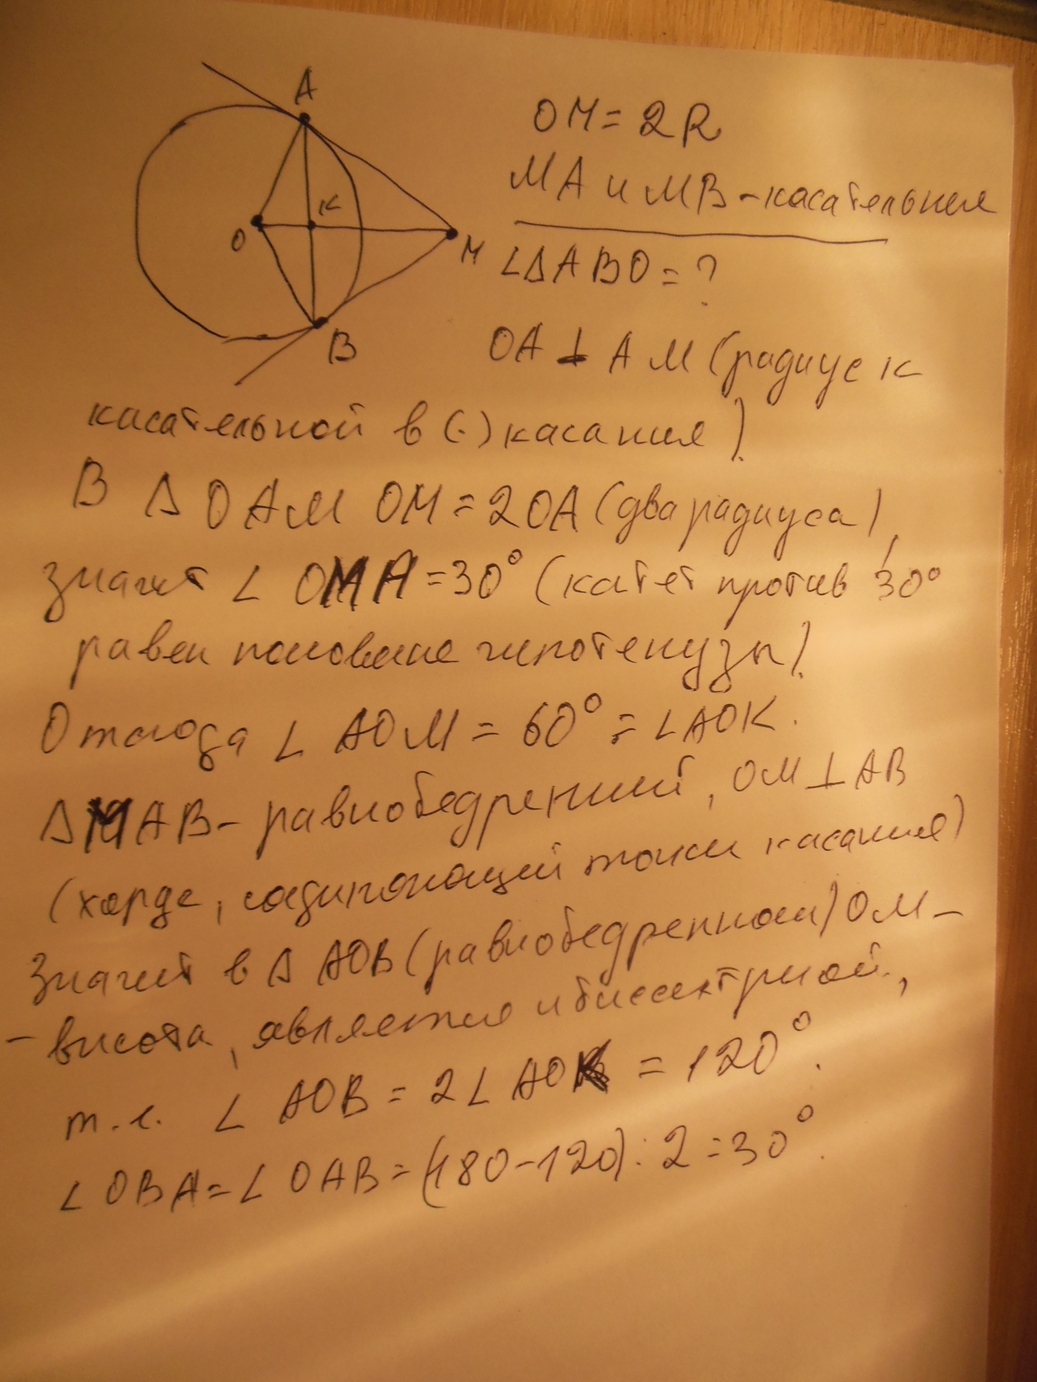 A
OM = 2R
MA и MB - касательные
K
O
M
∠ΔABO = ?
B
OA ⊥ AM (радиус к
касательной в (·) касания).
В Δ OAM OM = 2OA (два радиуса),
значит ∠ OMA = 30° (катет против 30°
равен половине гипотенузы).
Отсюда ∠ AOM = 60° = ∠AOK.
ΔMAB - равнобедренный, OM ⊥ AB
(хорде, соединяющей точки касания)
Значит в Δ AOB (равнобедренном) OM -
- высота, является и биссектрисой,
т.е. ∠ AOB = 2∠ AOK = 120°.
∠ OBA = ∠ OAB = (180-120):2 = 30°.